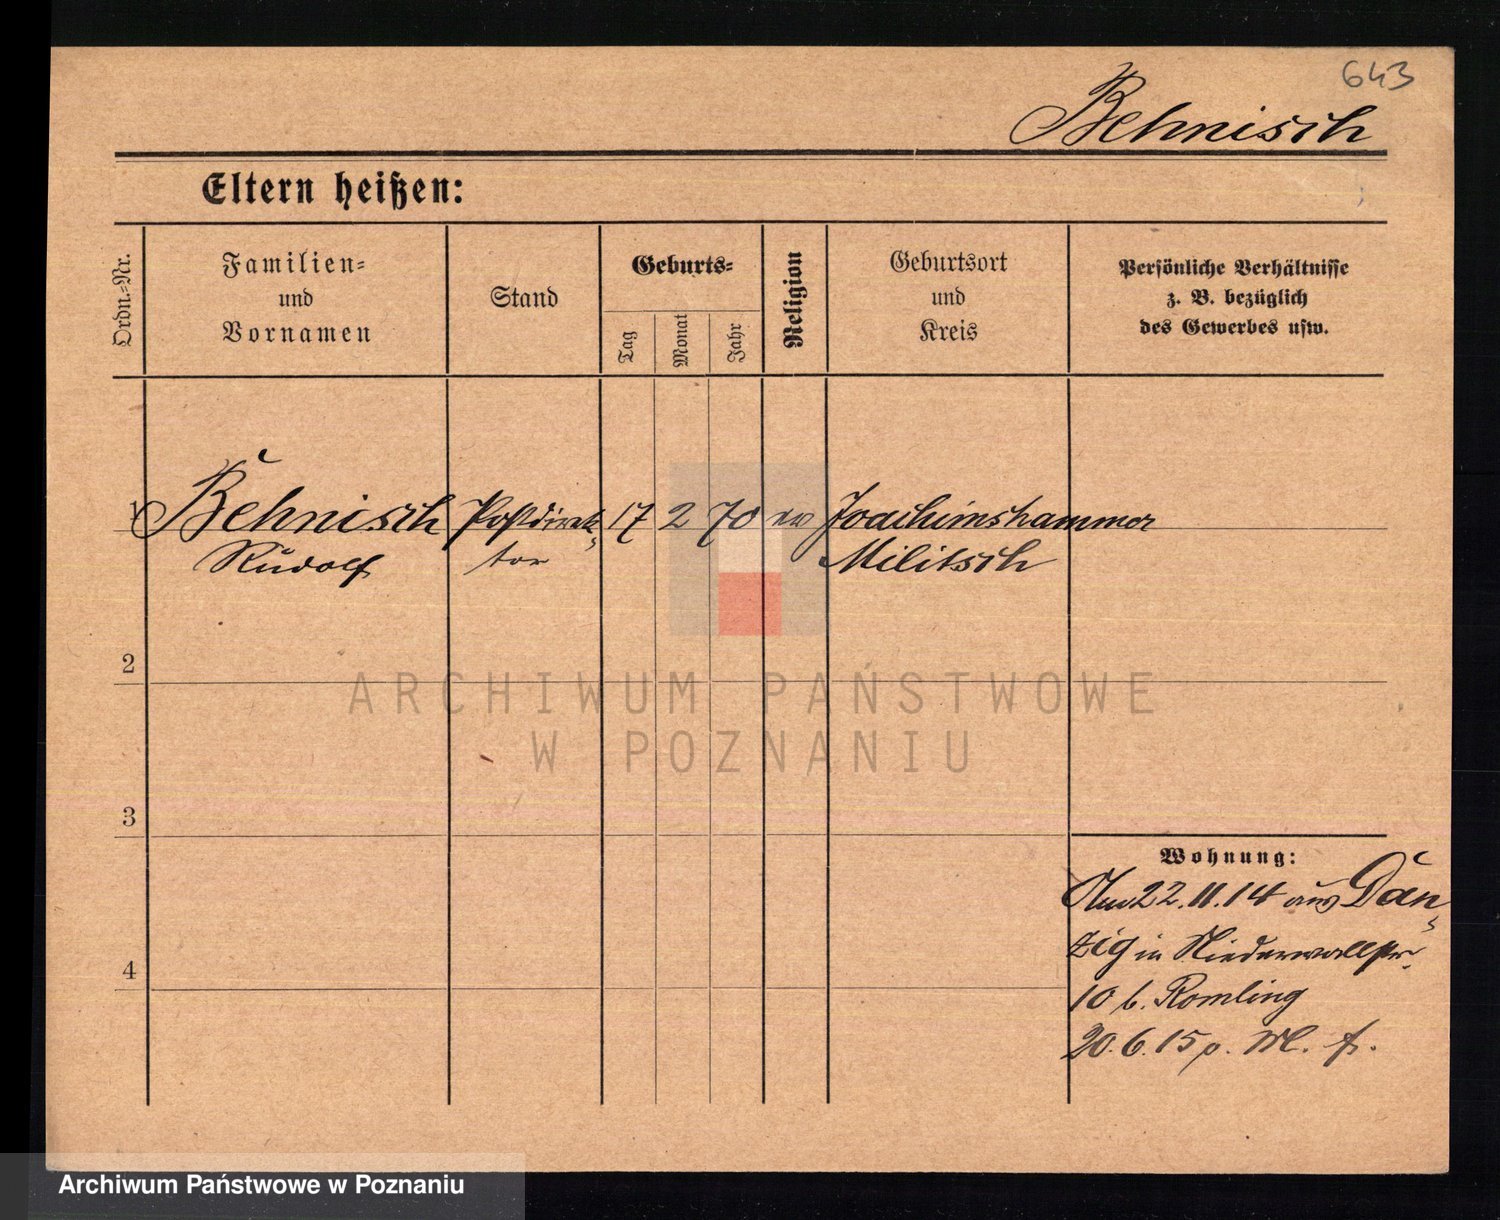 643
Behnisch
Eltern heißen:
Ordn.-Nr.
Familien-
und
Vornamen
Stand
Geburts-
Tag
Monat
Jahr
Religion
Geburtsort
und
Kreis
Persönliche Verhältnisse
z. B. bezüglich
des Gewerbes usw.
1 Behnisch Postdirek- 17 2 70 ev Joachimshammer
Rudolf tor Militsch
2
3
4
Wohnung:
22.11.14 aus Dan-
zig in Niederwallstr.
10 b. Romling
20.6.15
ARCHIWUM PAŃSTWOWE
W POZNANIU
Archiwum Państwowe w Poznaniu